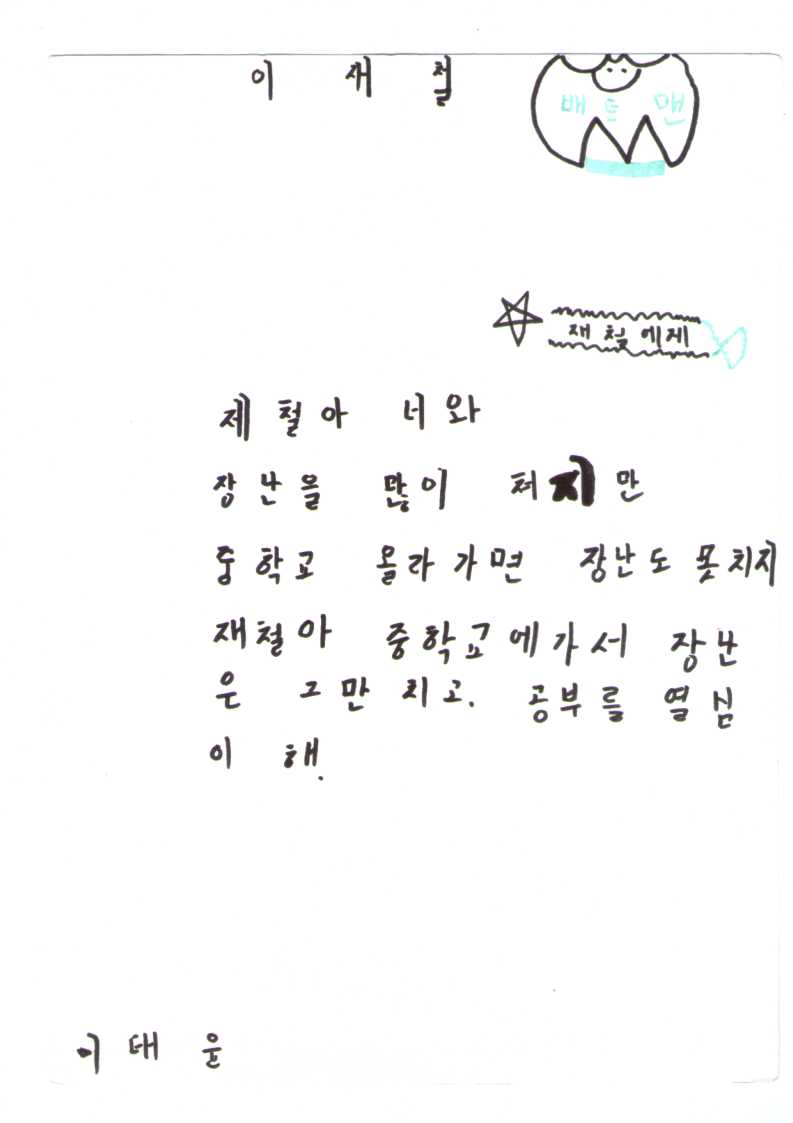 이 재 철
배 트 맨
재 철 에게
제 철 아 너 와
장 난 을 많 이 쳐 지 만
중 학 교 올 라 가 면 장 난 도 못 치지
재 철 아 중 학 교 에 가 서 장 난
은 그 만 치 고. 공 부 를 열 심
이 해.
이 태 윤